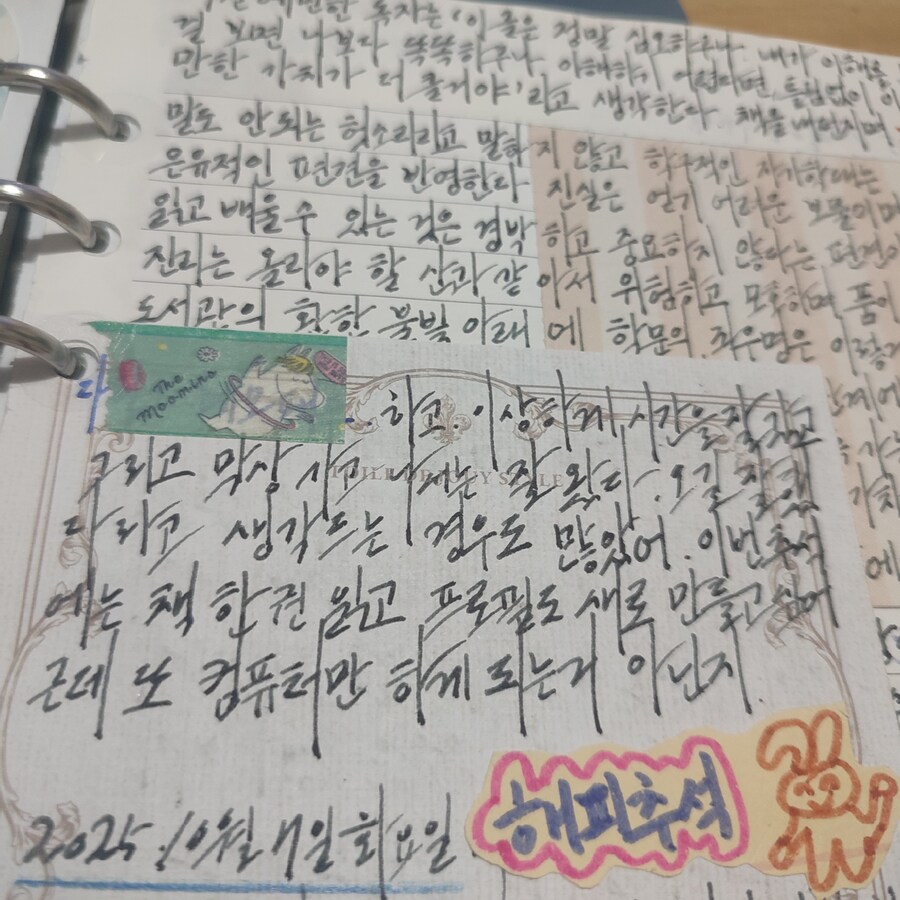 독자는 '이 글은 정말 심오하구나. 내가 이해를
걸 보면 나보다 똑똑하구나. 이해하기 어렵다면 틀림없이 이
만한 가치가 더 클거야'라고 생각한다. 책을 내던지며
말도 안 되는 헛소리라고 말하지 않고 학구적인 자기학대는
은유적인 편견을 반영한다. 진실은 얻기 어려운 보물이며
읽고 배울 수 있는 것은 경박하고 중요하지 않다는 편견이
진리는 올라야 할 산과 같아서 위험하고 모호하며 품이
도서관의 환한 불빛 아래에 학문의 좌우명은 이렇게
The Moomins
하고. 이상하게 시간을 잘 가고
그리고 막상 사고 나서는 잘 왔다. 오길 잘했
다 라고 생각드는 경우도 많았어. 이번 추석
에는 책 한권 읽고 프로필도 새로 만들고 싶어
근데 또 컴퓨터만 하게 되는거 아닌지.
해피추석
2025. 10월 7일 화요일